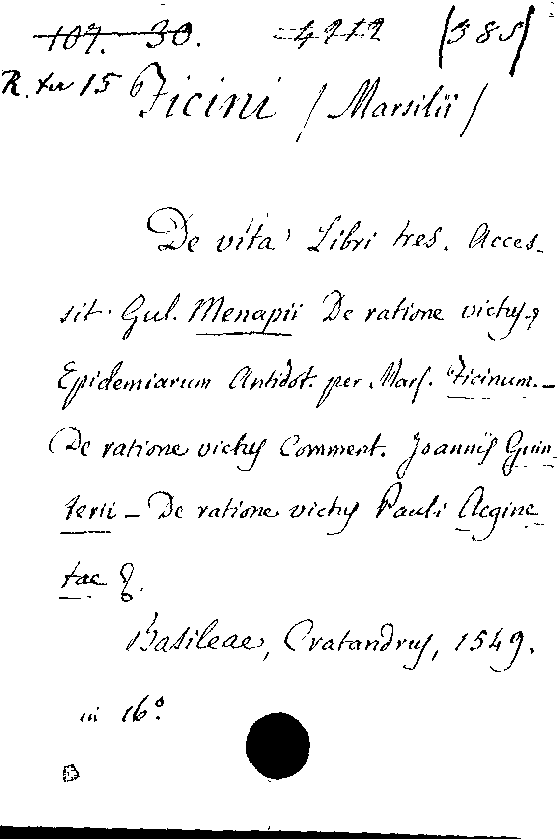 107. 30. 4212 (385)
R. ter 15 Ficini (Marsilii)
De vita Libri tres. Acces-
sit. Gul. Menapii De ratione victus,
Epidemiarum Antidot. per Mars. Ficinum. –
De ratione victus Comment. Joannis Guin-
terii – De ratione victus Pauli Aegine-
tae &.
Basileae, Cratandrus, 1549.
in 16°.